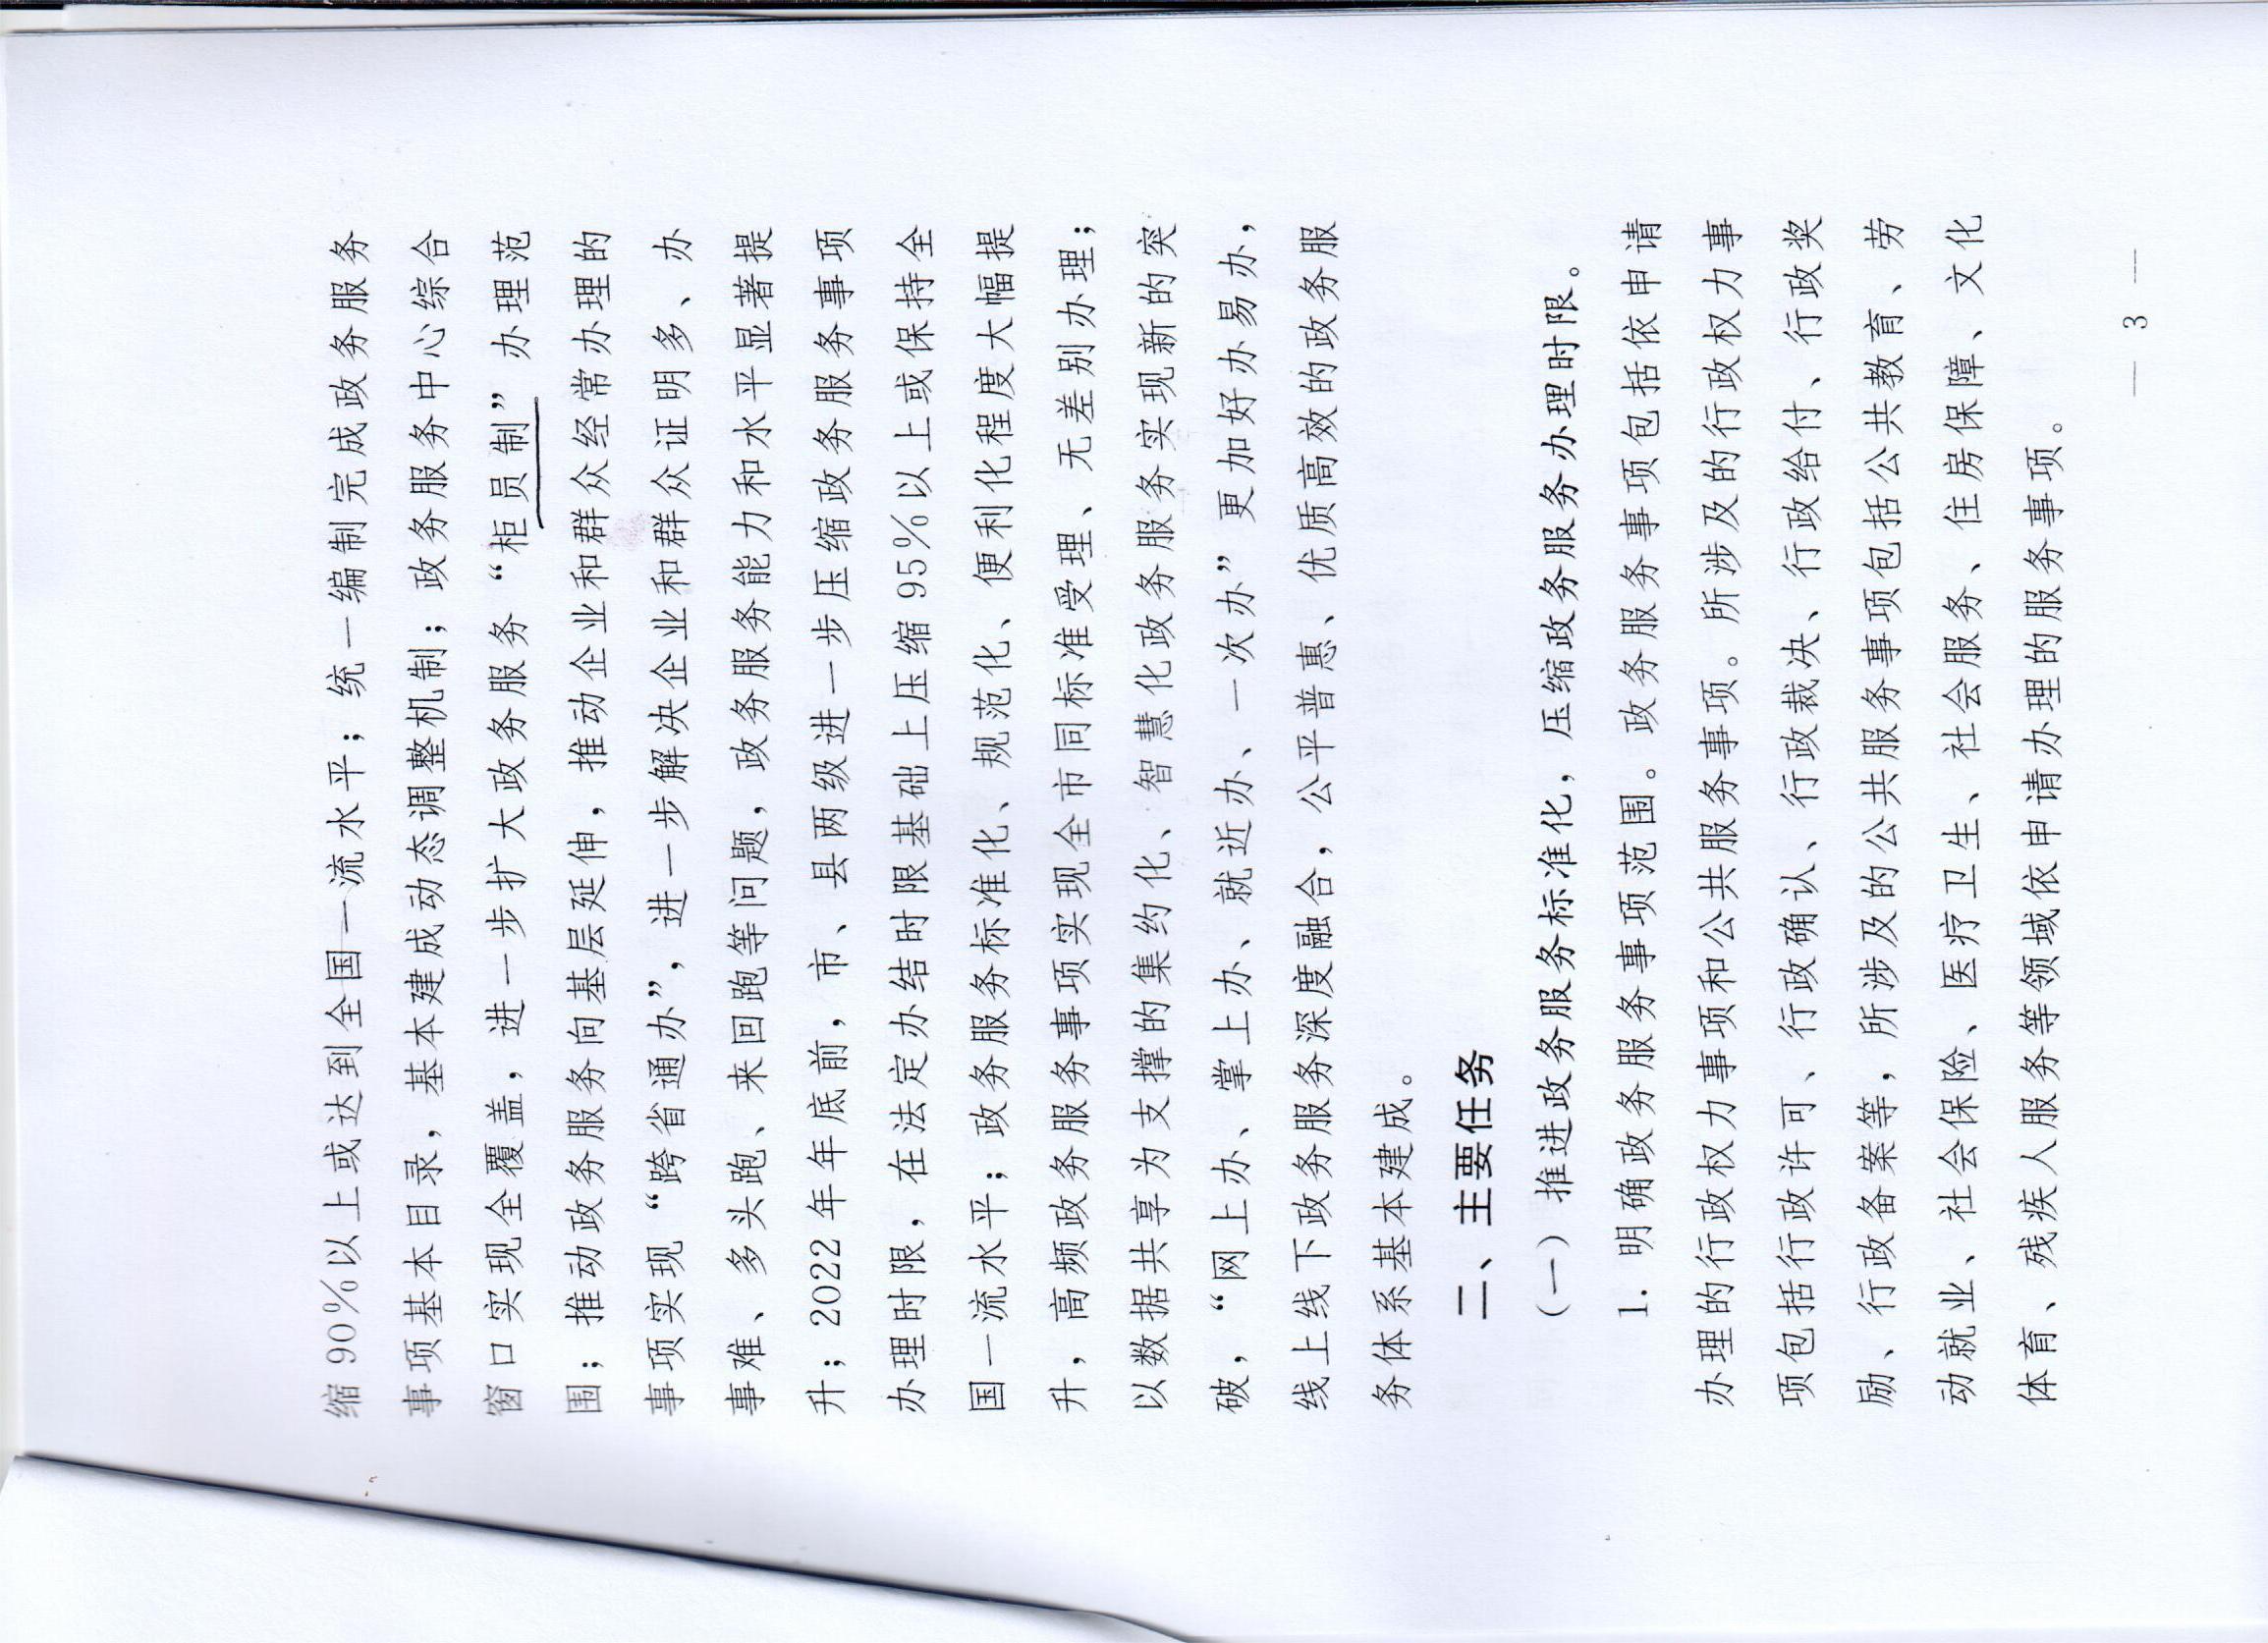 缩 90%以上或达到全国一流水平；统一编制完成政务服务
事项基本目录，基本建成动态调整机制；政务服务中心综合
窗口实现全覆盖，进一步扩大政务服务“柜员制”办理范
围；推动政务服务向基层延伸，推动企业和群众经常办理的
事项实现“跨省通办”，进一步解决企业和群众证明多、办
事难、多头跑、来回跑等问题，政务服务能力和水平显著提
升；2022 年年底前，市、县两级进一步压缩政务服务事项
办理时限，在法定办结时限基础上压缩 95%以上或保持全
国一流水平；政务服务标准化、规范化、便利化程度大幅提
升，高频政务服务事项实现全市同标准受理、无差别办理；
以数据共享为支撑的集约化、智慧化政务服务实现新的突
破，“网上办、掌上办、就近办、一次办”更加好办易办，
线上线下政务服务深度融合，公平普惠、优质高效的政务服
务体系基本建成。
二、主要任务
（一）推进政务服务标准化，压缩政务服务办理时限。
1. 明确政务服务事项范围。政务服务事项包括依申请
办理的行政权力事项和公共服务事项。所涉及的行政权力事
项包括行政许可、行政确认、行政裁决、行政给付、行政奖
励、行政备案等，所涉及的公共服务事项包括公共教育、劳
动就业、社会保险、医疗卫生、社会服务、住房保障、文化
体育、残疾人服务等领域依申请办理的服务事项。
— 3 —